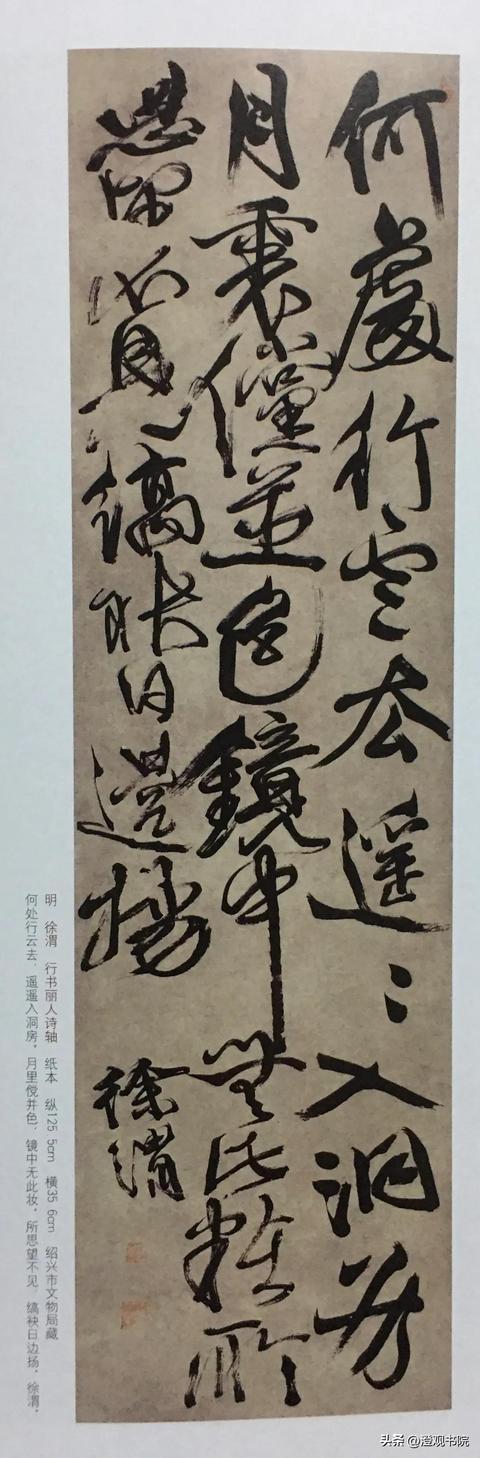 何處行雲去遥〻入洞房
月裏儻並色鏡中無此粧所
思望不見縞袂日邊揚
徐渭
明 徐渭 行书丽人诗轴 纸本 纵125 5cm 横35 6cm 绍兴市文物局藏
何处行云去，遥遥入洞房，月里傥并色，镜中无此妆，所思望不见，缟袂日边扬，徐渭。
头条 @澄观书院